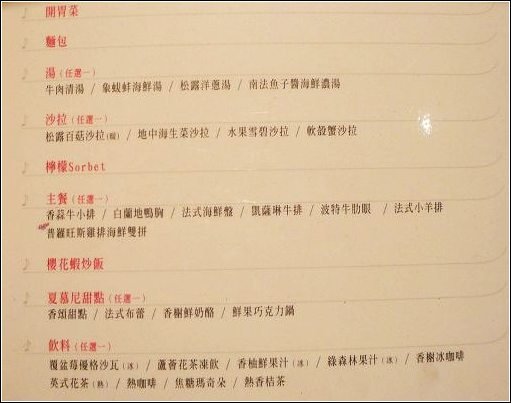 開胃菜
麵包
湯(任選一)
牛肉清湯 / 象蚊蚌海鮮湯 / 松露洋蔥湯 / 南法魚子醬海鮮濃湯
沙拉(任選一)
松露百菇沙拉(暖) / 地中海生菜沙拉 / 水果雪碧沙拉 / 軟殼蟹沙拉
檸檬Sorbet
主餐(任選一)
香蒜牛小排 / 白蘭地鴨胸 / 法式海鮮盤 / 凱薩琳牛排 / 波特牛肋眼 / 法式小羊排
普羅旺斯雞排海鮮雙拼
櫻花蝦炒飯
夏慕尼甜點(任選一)
香頌甜點 / 法式布蕾 / 香榭鮮奶酪 / 鮮果巧克力鍋
飲料(任選一)
覆盆莓優格沙瓦(冰) / 蘆薈花茶凍飲 / 香柚鮮果汁(冰) / 綠森林果汁(冰) / 香榭冰咖啡
英式花茶(熱) / 熱咖啡 / 焦糖瑪奇朵 / 熱香桔茶